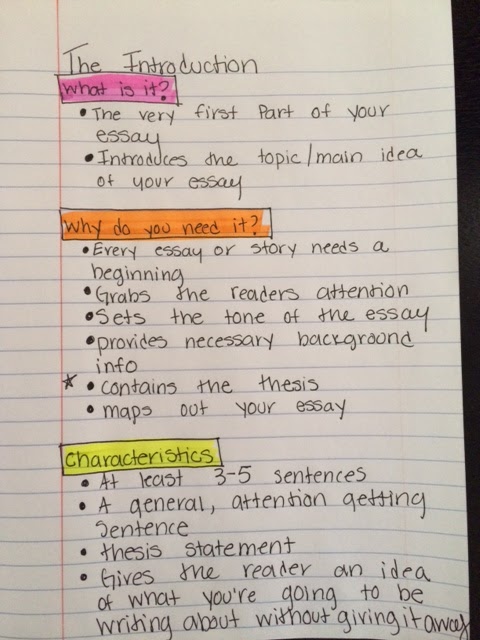 The Introduction
What is it?
• The very first Part of your
essay
• Introduces the topic/main idea
of your essay
Why do you need it?
• Every essay or story needs a
beginning
• Grabs the readers attention
• Sets the tone of the essay
• provides necessary background
info
★ • contains the thesis
• maps out your essay
Characteristics
• At least 3-5 sentences
• A general, attention getting
sentence
• thesis statement
• Gives the reader an idea
of what you're going to be
writing about without giving it away